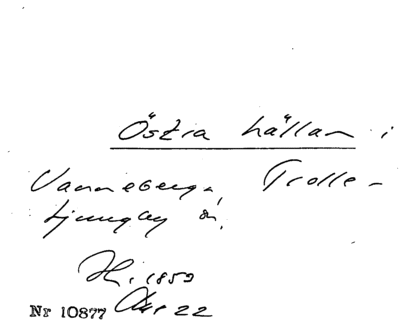 Östra hällan i
Vanneberga, Trolle-
ljungby sn.
Hi. 1852
Nr 10877 22